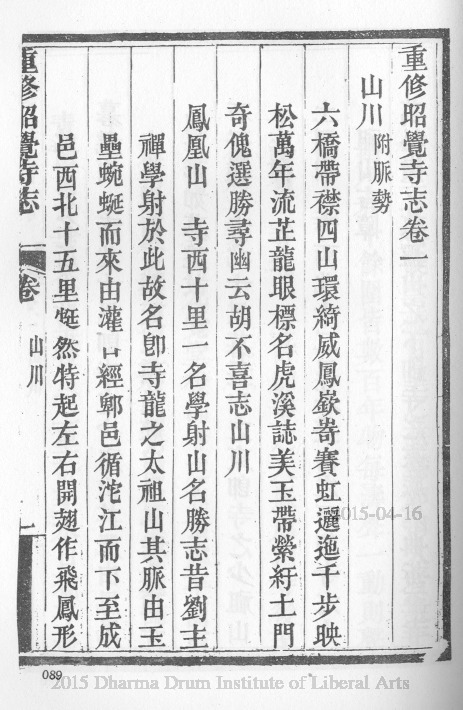 重修昭覺寺志卷一
山川 附脈勢
六橋帶襟四山環綺威鳳嶔嵜賽虹邐迤千步映
松萬年流芷龍眼標名虎溪誌美玉帶縈紆土門
奇傀選勝尋幽云胡不喜志山川
鳳凰山 寺西十里一名學射山名勝志昔劉主
禪學射於此故名卽寺龍之太祖山其脈由玉
壘蜿蜒而來由灌口經郫邑循沱江而下至成
邑西北十五里 然特起左右開翅作飛鳳形
重修昭覺寺志
卷
山川
一
089
2015-04-16
2015 Dharma Drum Institute of Liberal Arts